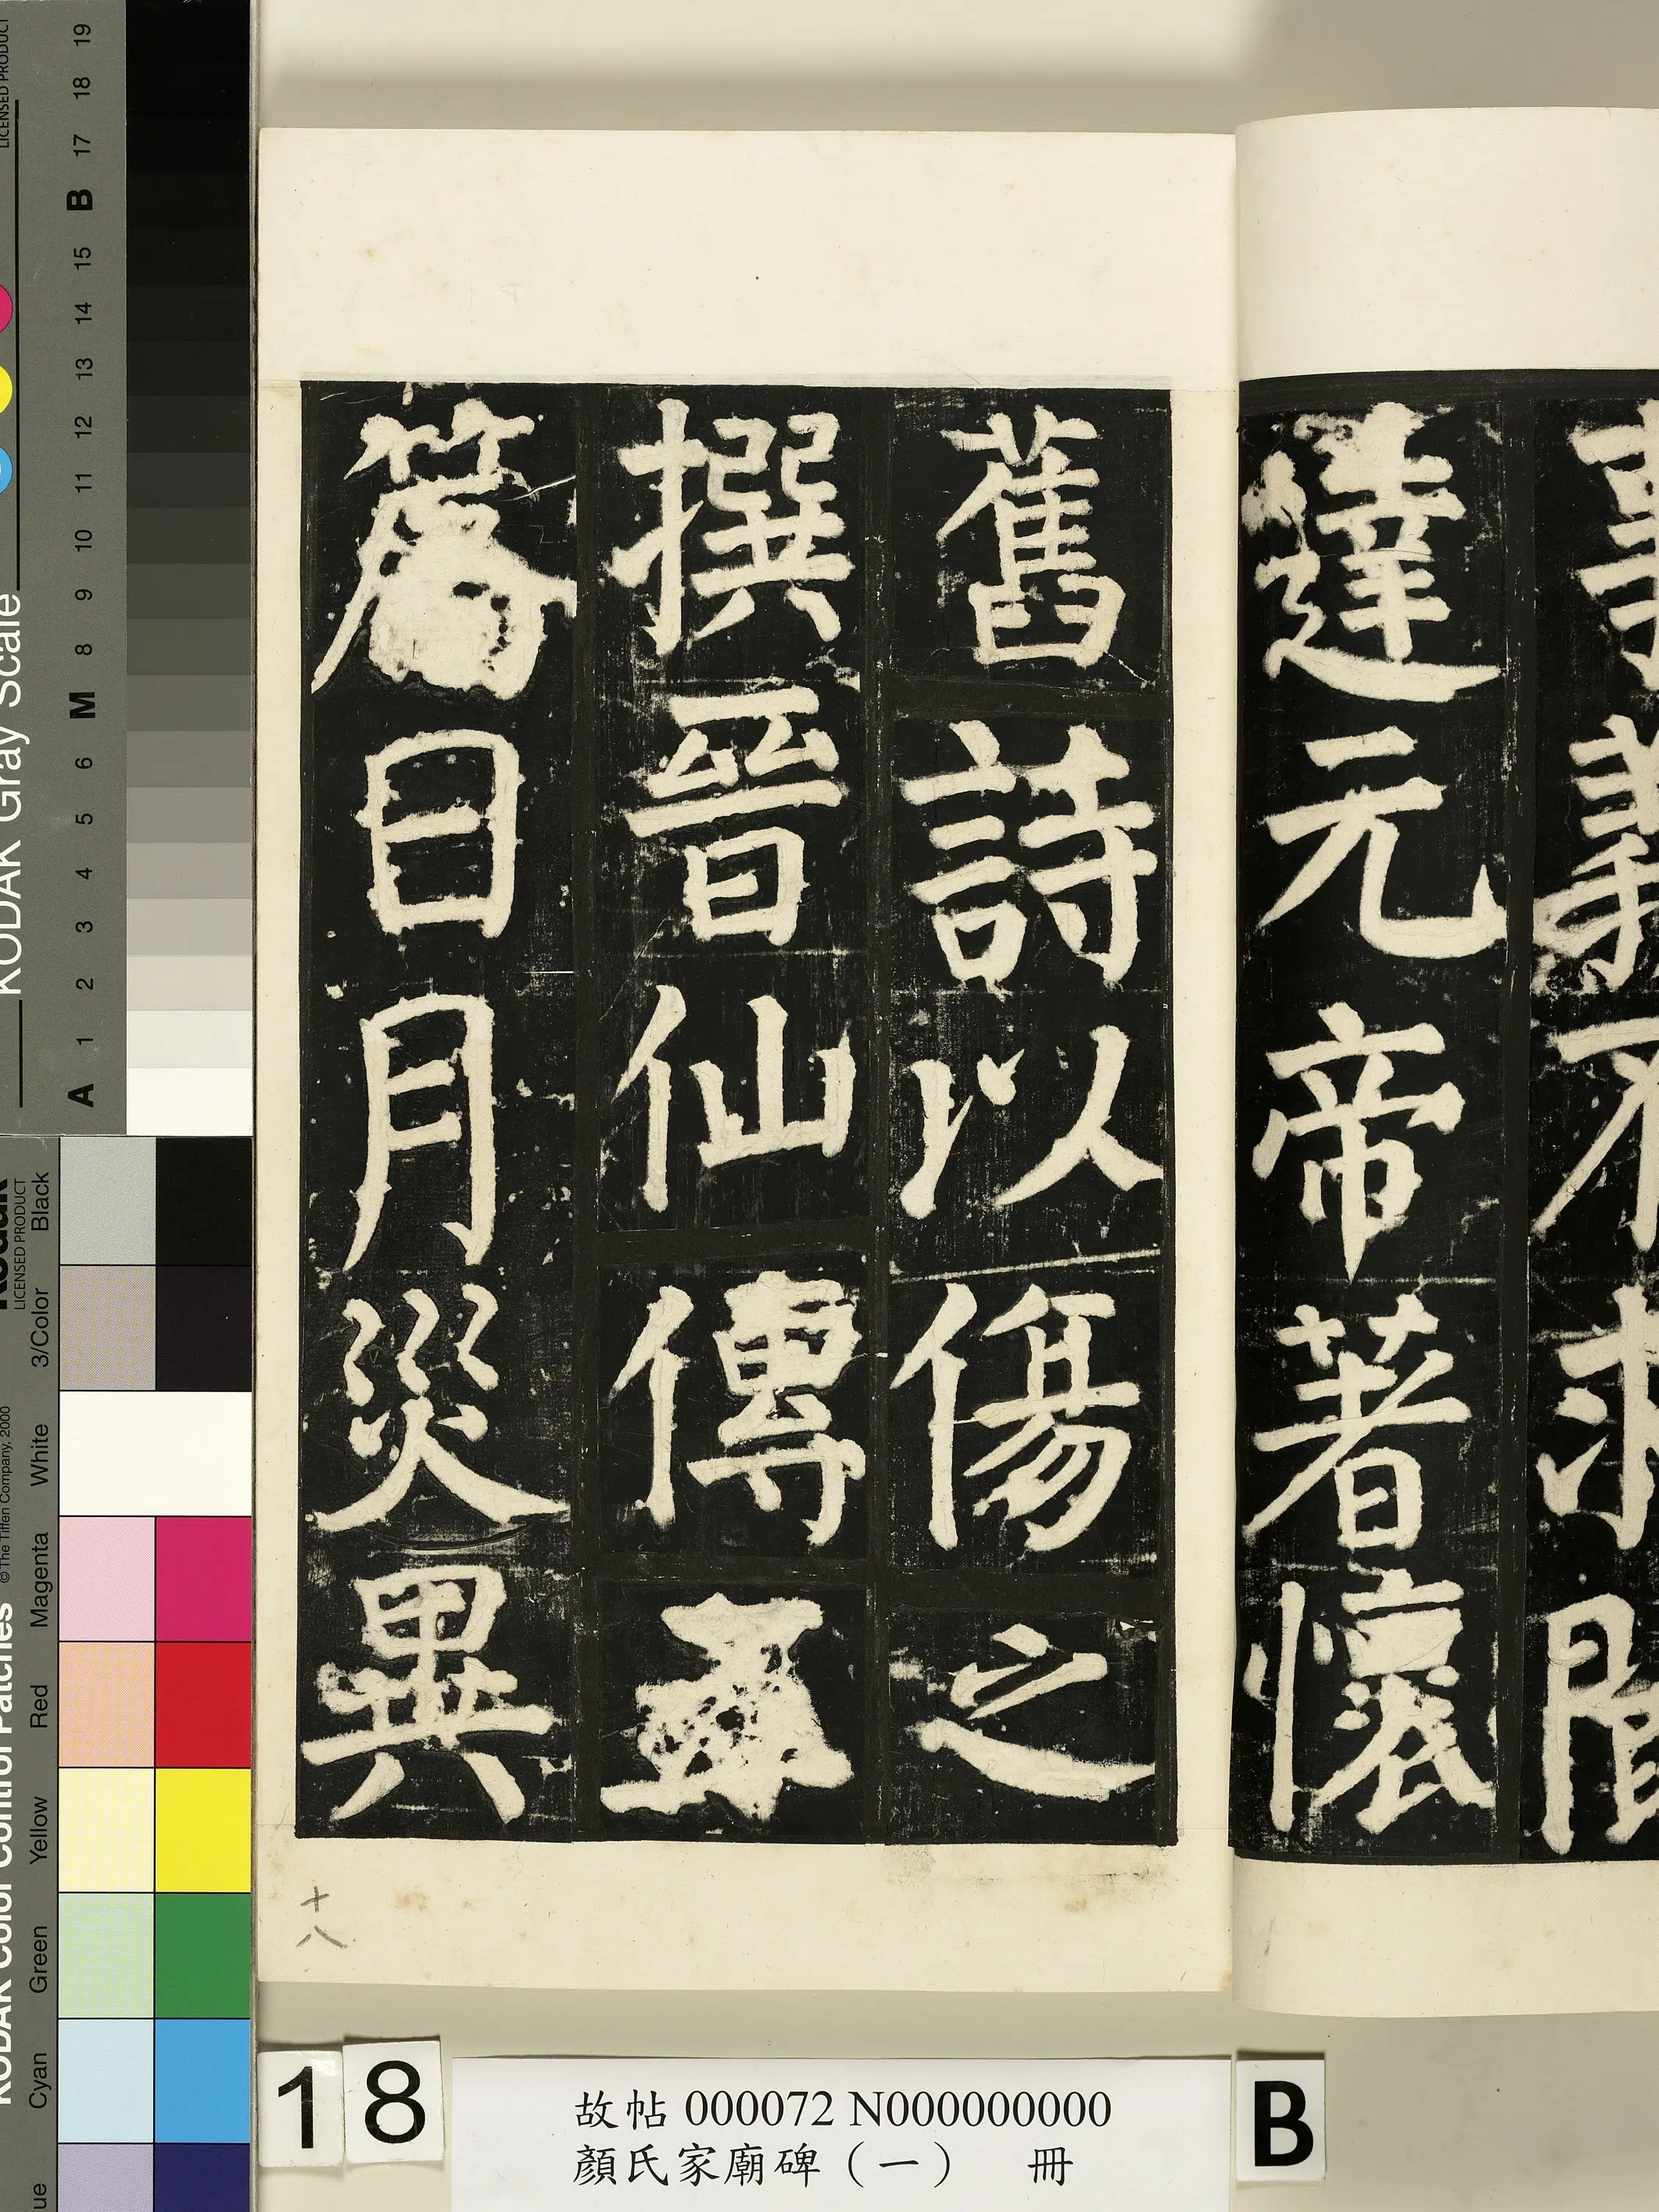 事義不求聞
達元帝著懷
舊詩以傷之
撰晉仙傳五
篇日月災異
十八
18
故帖 000072 N000000000
顏氏家廟碑（一） 冊
B
KODAK Gray Scale
LICENSED PRODUCT
A 1 2 3 4 5 6 M 8 9 10 11 12 13 14 15 B 17 18 19
KODAK Color Control Patches
© The Tiffen Company, 2000
Kodak
LICENSED PRODUCT
Cyan Green Yellow Red Magenta White 3/Color Black